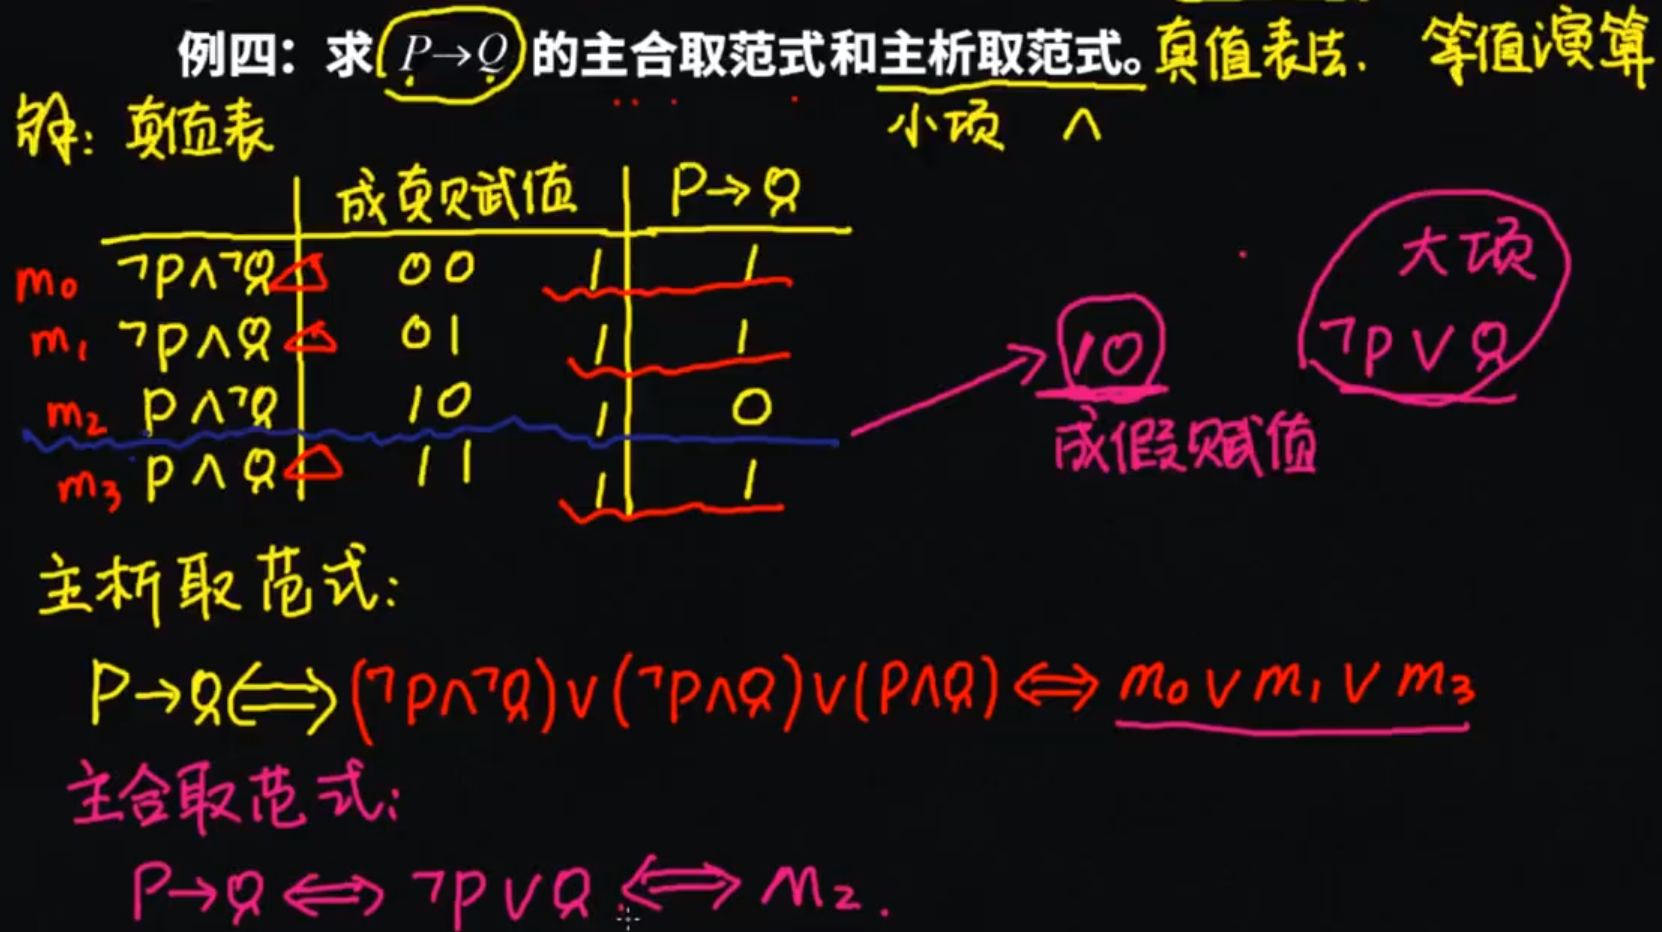 例四：求 P→Q 的主合取范式和主析取范式。真值表法. 等值演算
解: 真值表
小项 ∧
成真赋值 P→Q
m₀ ¬P∧¬Q 00 1 1
m₁ ¬P∧Q 01 1 1
m₂ P∧¬Q 10 1 0
m₃ P∧Q 11 1 1
10
成假赋值
大项
¬P∨Q
主析取范式:
P→Q⟺(¬P∧¬Q)∨(¬P∧Q)∨(P∧Q)⟺m₀∨m₁∨m₃
主合取范式:
P→Q⟺¬P∨Q⟺M₂.